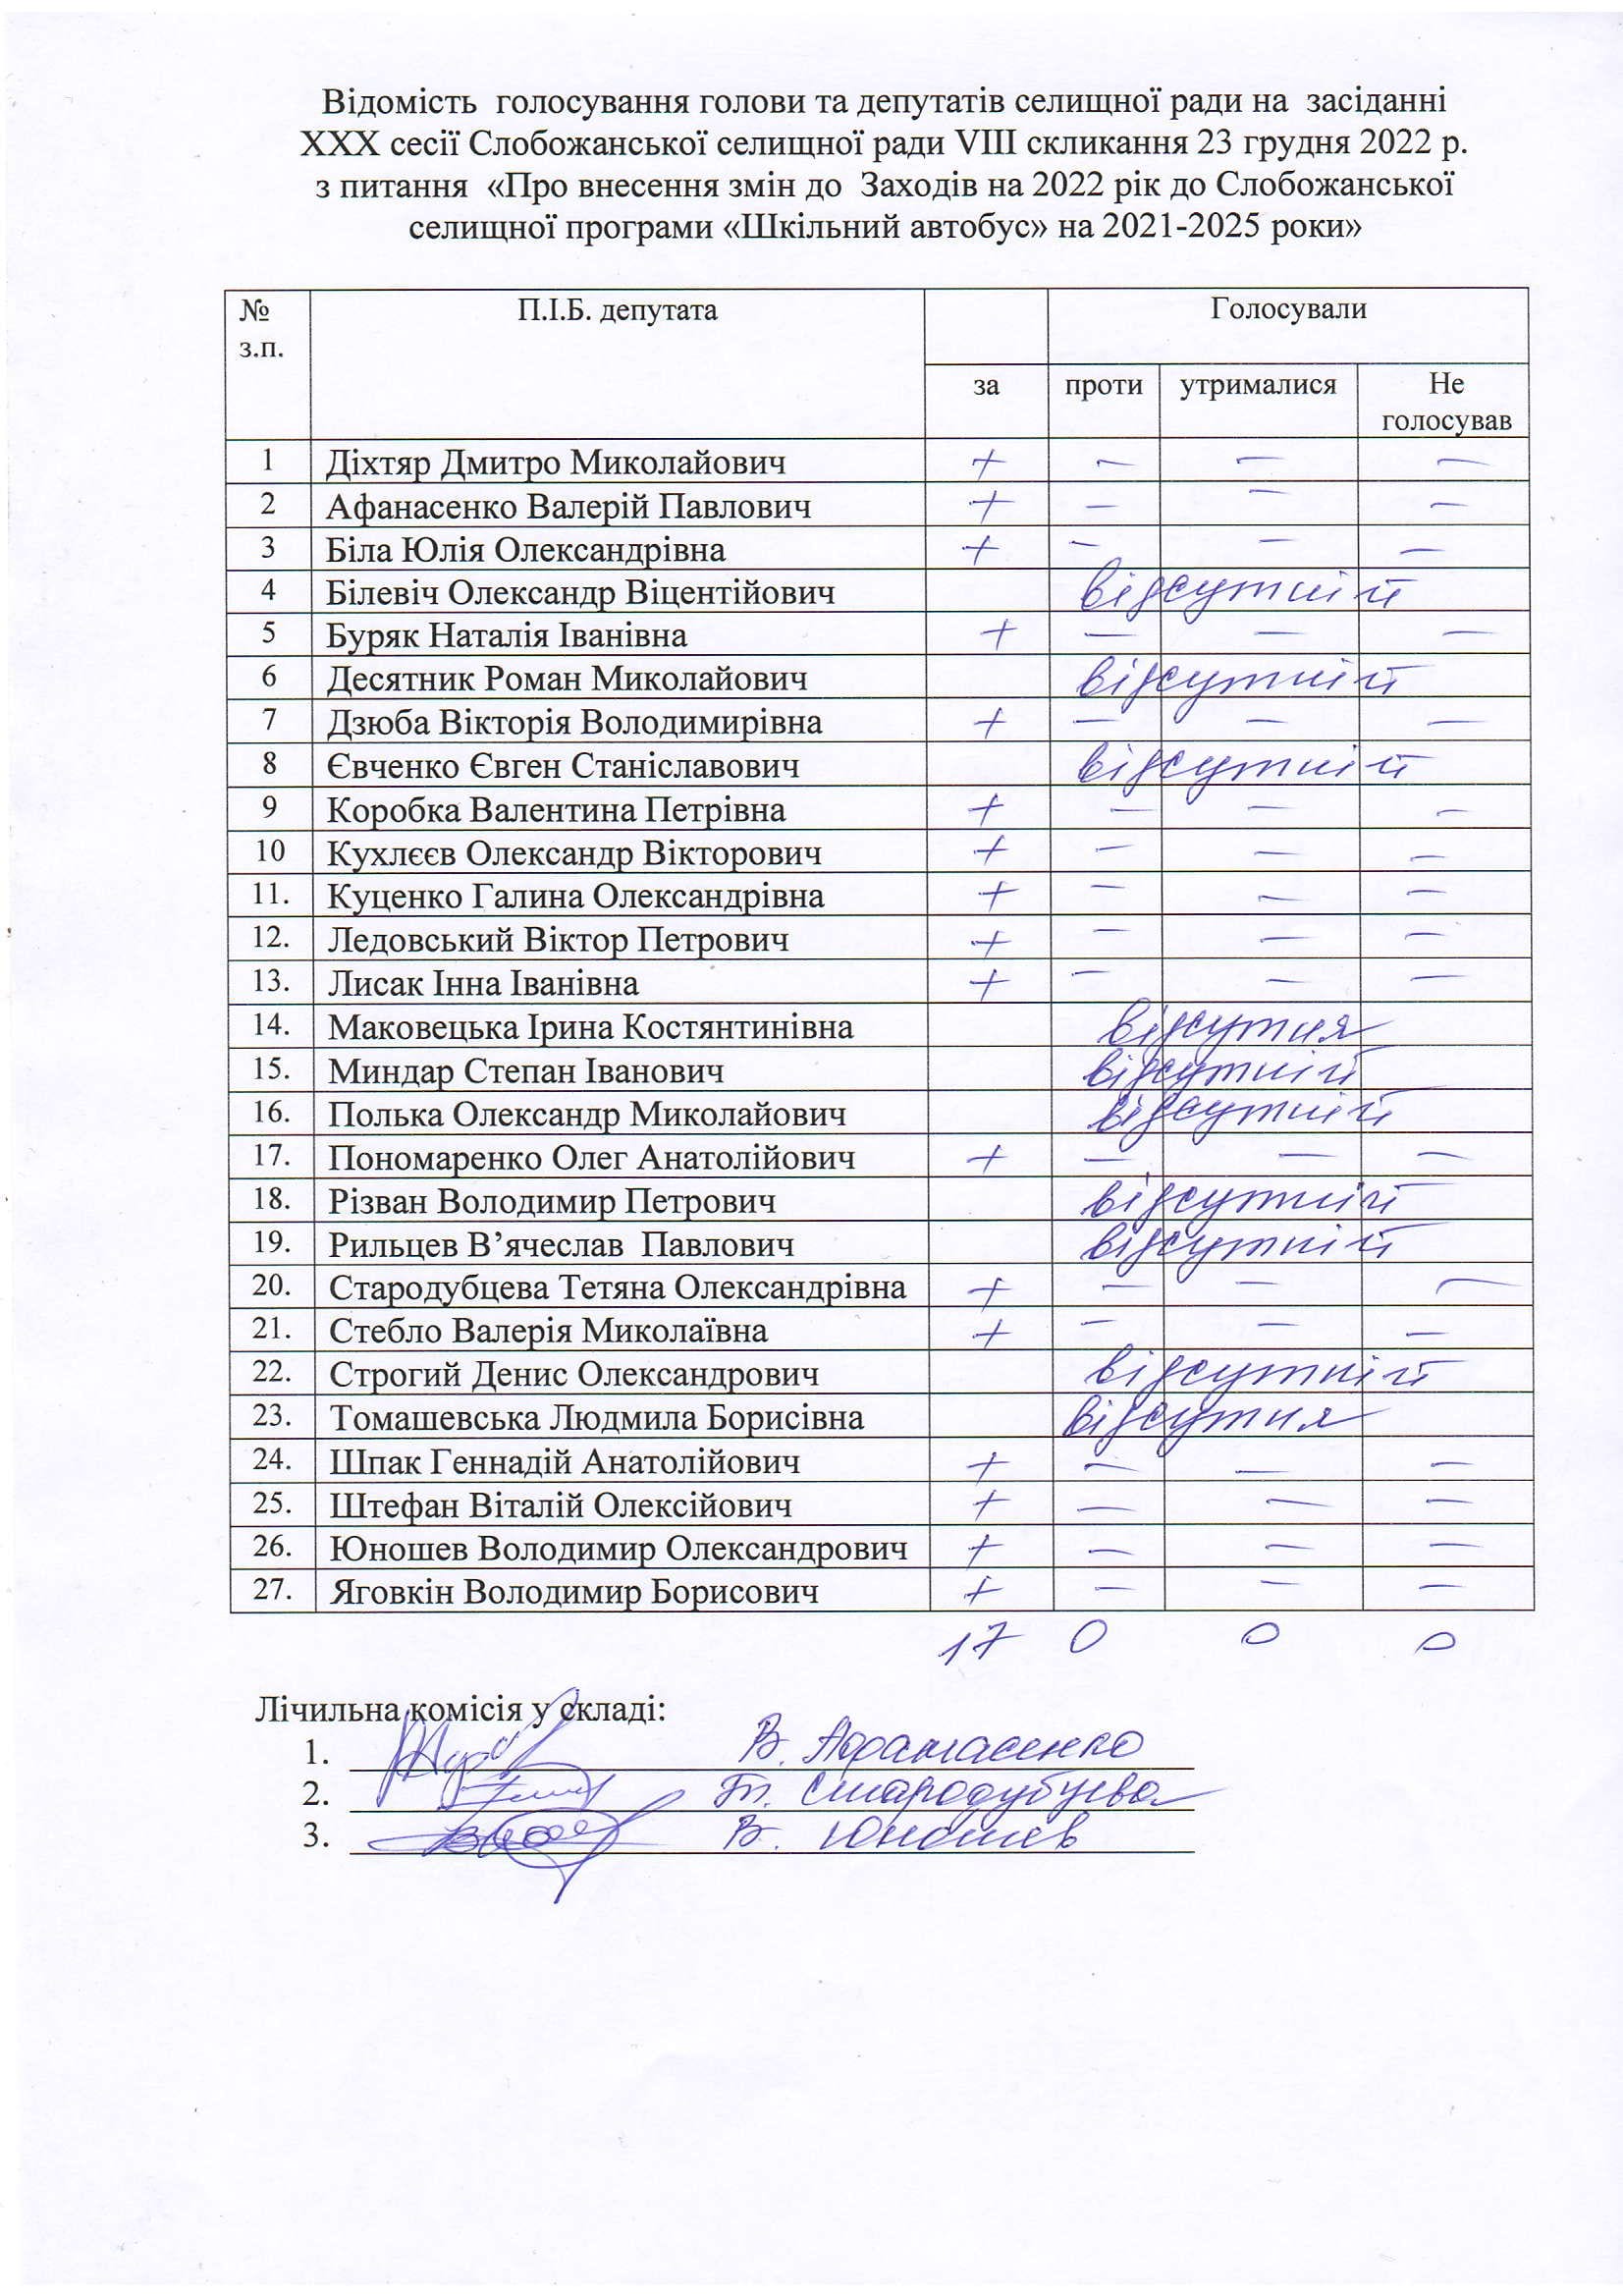 Відомість голосування голови та депутатів селищної ради на засіданні
XXX сесії Слобожанської селищної ради VIII скликання 23 грудня 2022 р.
з питання «Про внесення змін до Заходів на 2022 рік до Слобожанської
селищної програми «Шкільний автобус» на 2021-2025 роки»
№ з.п. П.І.Б. депутата Голосували
за проти утрималися Не голосував
1 Діхтяр Дмитро Миколайович + — — —
2 Афанасенко Валерій Павлович + — — —
3 Біла Юлія Олександрівна + — — —
4 Білевіч Олександр Віцентійович відсутній
5 Буряк Наталія Іванівна + — — —
6 Десятник Роман Миколайович відсутній
7 Дзюба Вікторія Володимирівна + — — —
8 Євченко Євген Станіславович відсутній
9 Коробка Валентина Петрівна + — — —
10 Кухлєєв Олександр Вікторович + — — —
11. Куценко Галина Олександрівна + — — —
12. Ледовський Віктор Петрович + — — —
13. Лисак Інна Іванівна + — — —
14. Маковецька Ірина Костянтинівна відсутня
15. Миндар Степан Іванович відсутній
16. Полька Олександр Миколайович відсутній
17. Пономаренко Олег Анатолійович + — — —
18. Різван Володимир Петрович відсутній
19. Рильцев В’ячеслав Павлович відсутній
20. Стародубцева Тетяна Олександрівна + — — —
21. Стебло Валерія Миколаївна + — — —
22. Строгий Денис Олександрович відсутній
23. Томашевська Людмила Борисівна відсутня
24. Шпак Геннадій Анатолійович + — — —
25. Штефан Віталій Олексійович + — — —
26. Юношев Володимир Олександрович + — — —
27. Яговкін Володимир Борисович + — — —
17 0 0 0
Лічильна комісія у складі:
1. В. Афанасенко
2. Т. Стародубцева
3. В. Юношев